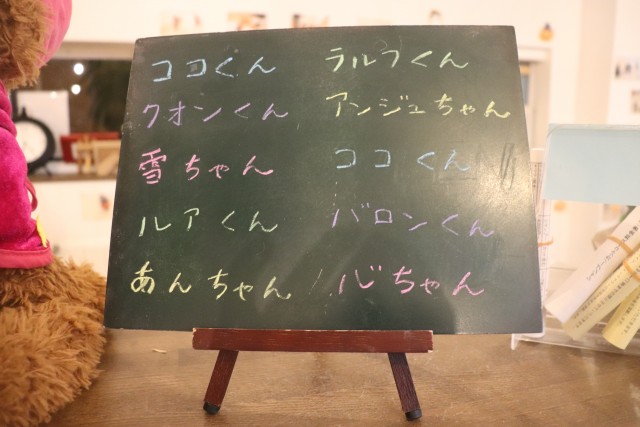 ココくん
クオンくん
雪ちゃん
ルアくん
あんちゃん
ラルフくん
アンジュちゃん
ココくん
バロンくん
心ちゃん